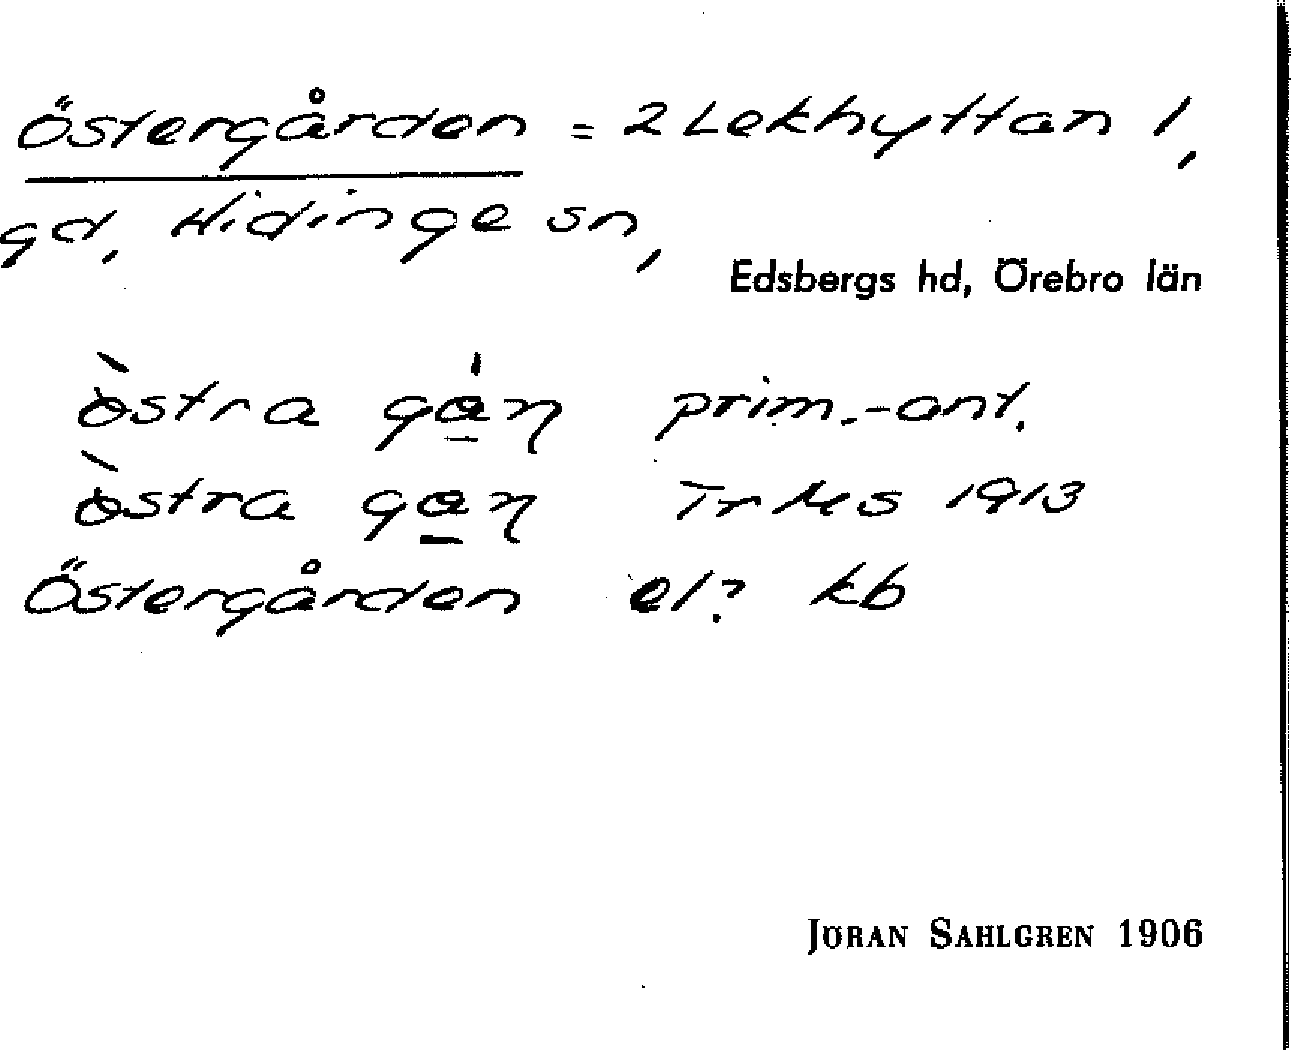 Östergården = 2 Lekhyttan 1,
gd, Hidinge sn,
Edsbergs hd, Örebro län
òstra ga̱ŋ prim.-ant.
òstra ga̱ŋ TrMs 1913
Östergården el? kb
JÖRAN SAHLGREN 1906